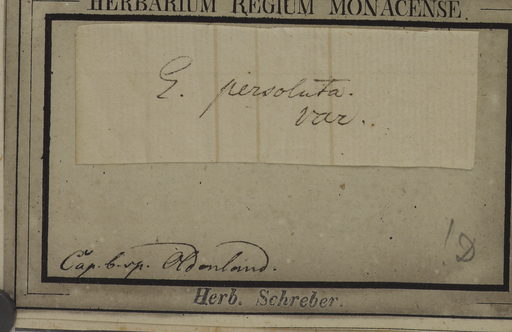 HERBARIUM REGIUM MONACENSE.
E. persoluta.
var..
Cap. b. sp. Oldenland.
! D
Herb. Schreber.